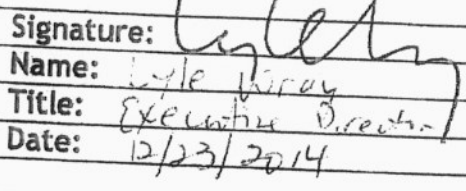 Signature: Lyle Wray
Name: Lyle Wray
Title: Executive Director
Date: 12/23/2014